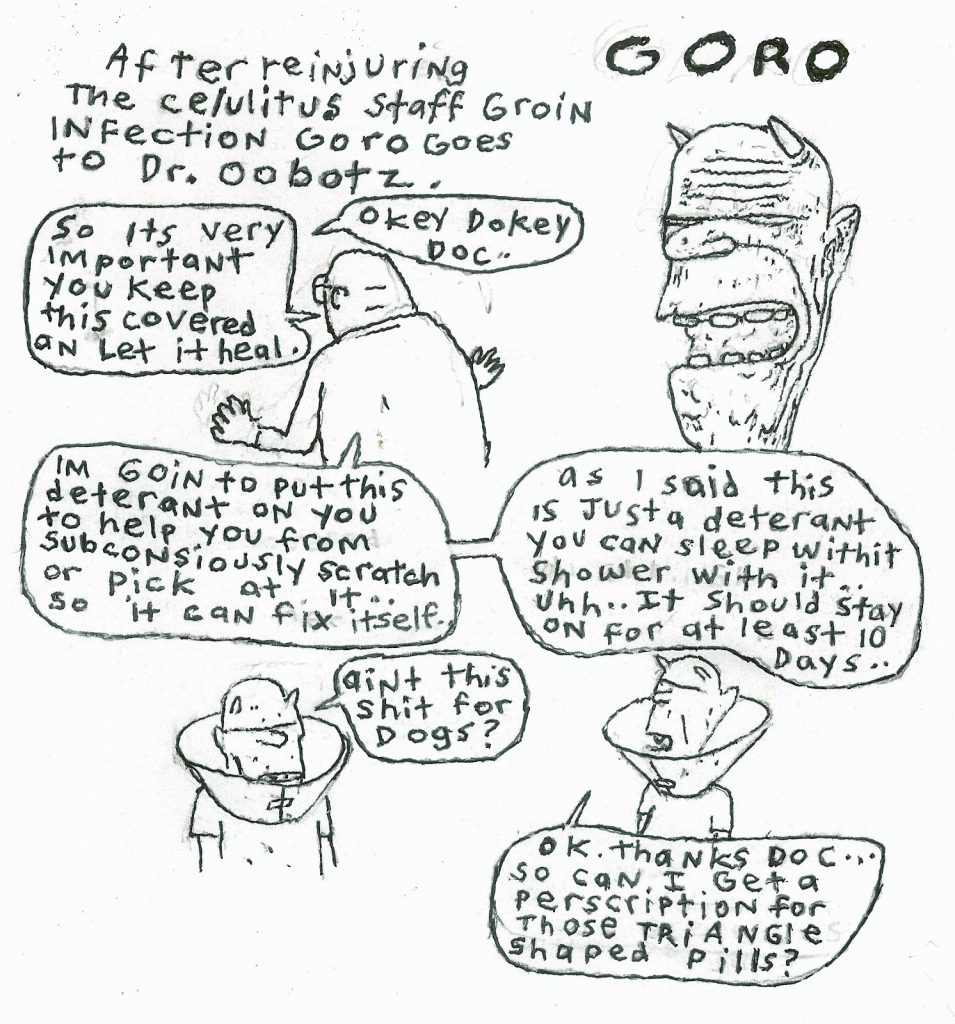 GORO
After reinjuring
The celulitus staff Groin
INfection Goro Goes
to Dr. Oobotz.
So its very
important
you keep
this covered
an Let it heal.
Okey Dokey
Doc..
Im Goin to put this
deterant on you
to help you from
subconsiously scratch
or pick at it..
so it can fix itself.
as I said this
is Just a deterant
you can sleep with it
shower with it..
uhh.. It should stay
on for at least 10
Days..
aint this
shit for
Dogs?
OK. thanks Doc...
so can I Get a
perscription for
those TRiANGle
shaped pills?